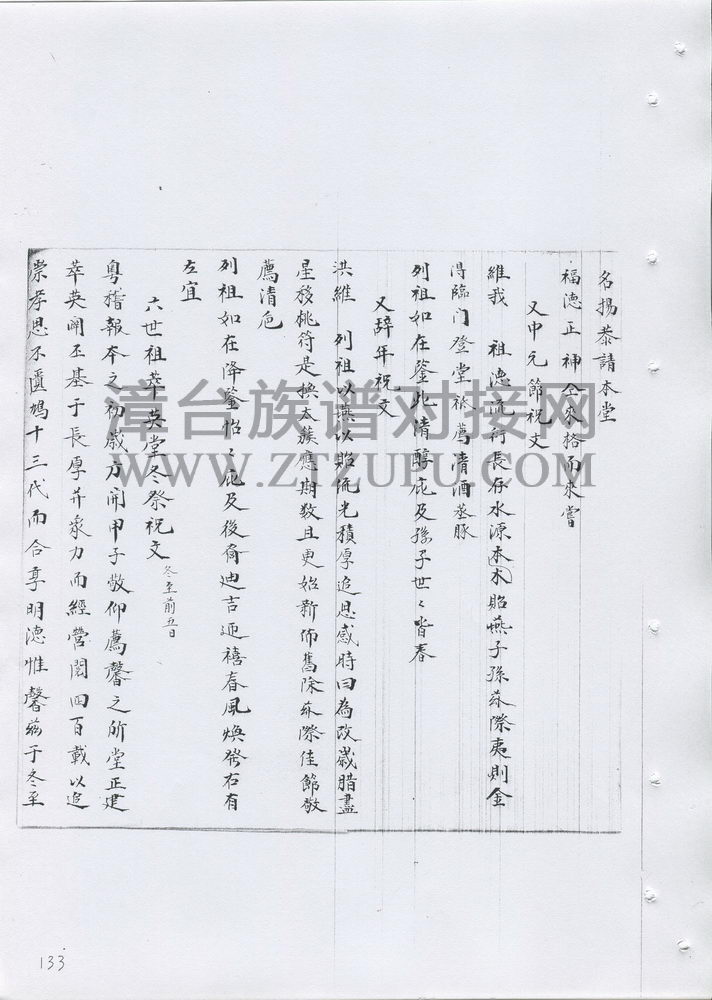 名揚恭請本堂
福德正神仝來格而來嘗
又中元節祝文
維我 祖德流行長存水源木本貽燕子孫茲際夷則金
得臨门登堂祚薦清酒蒸豚
列祖如在鑒此清醇庇及孫子世々皆春
又辞年祝文
洪維 列祖以燕以貽流光積厚追思感時曰為改歲腊盡
星移桃符是換太簇應期教且更始新佈舊除茲際佳節敬
薦清卮
列祖如在降鑒怡々庇及後裔迪吉迎禧春風煥發右有
左宜
六世祖萃英堂冬祭祝文 冬至前五日
粵稽報本之初歲方開甲子敬仰薦馨之所堂正建
萃英開丕基于長厚并衆力而經營閱四百載以追
崇孝思不匱鳩十三代而合享明德惟馨茲于冬至
漳台族谱对接网
WWW.ZTZUPU.COM
133